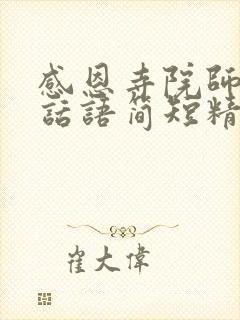 感恩寺院師
話語简短精
崔大偉